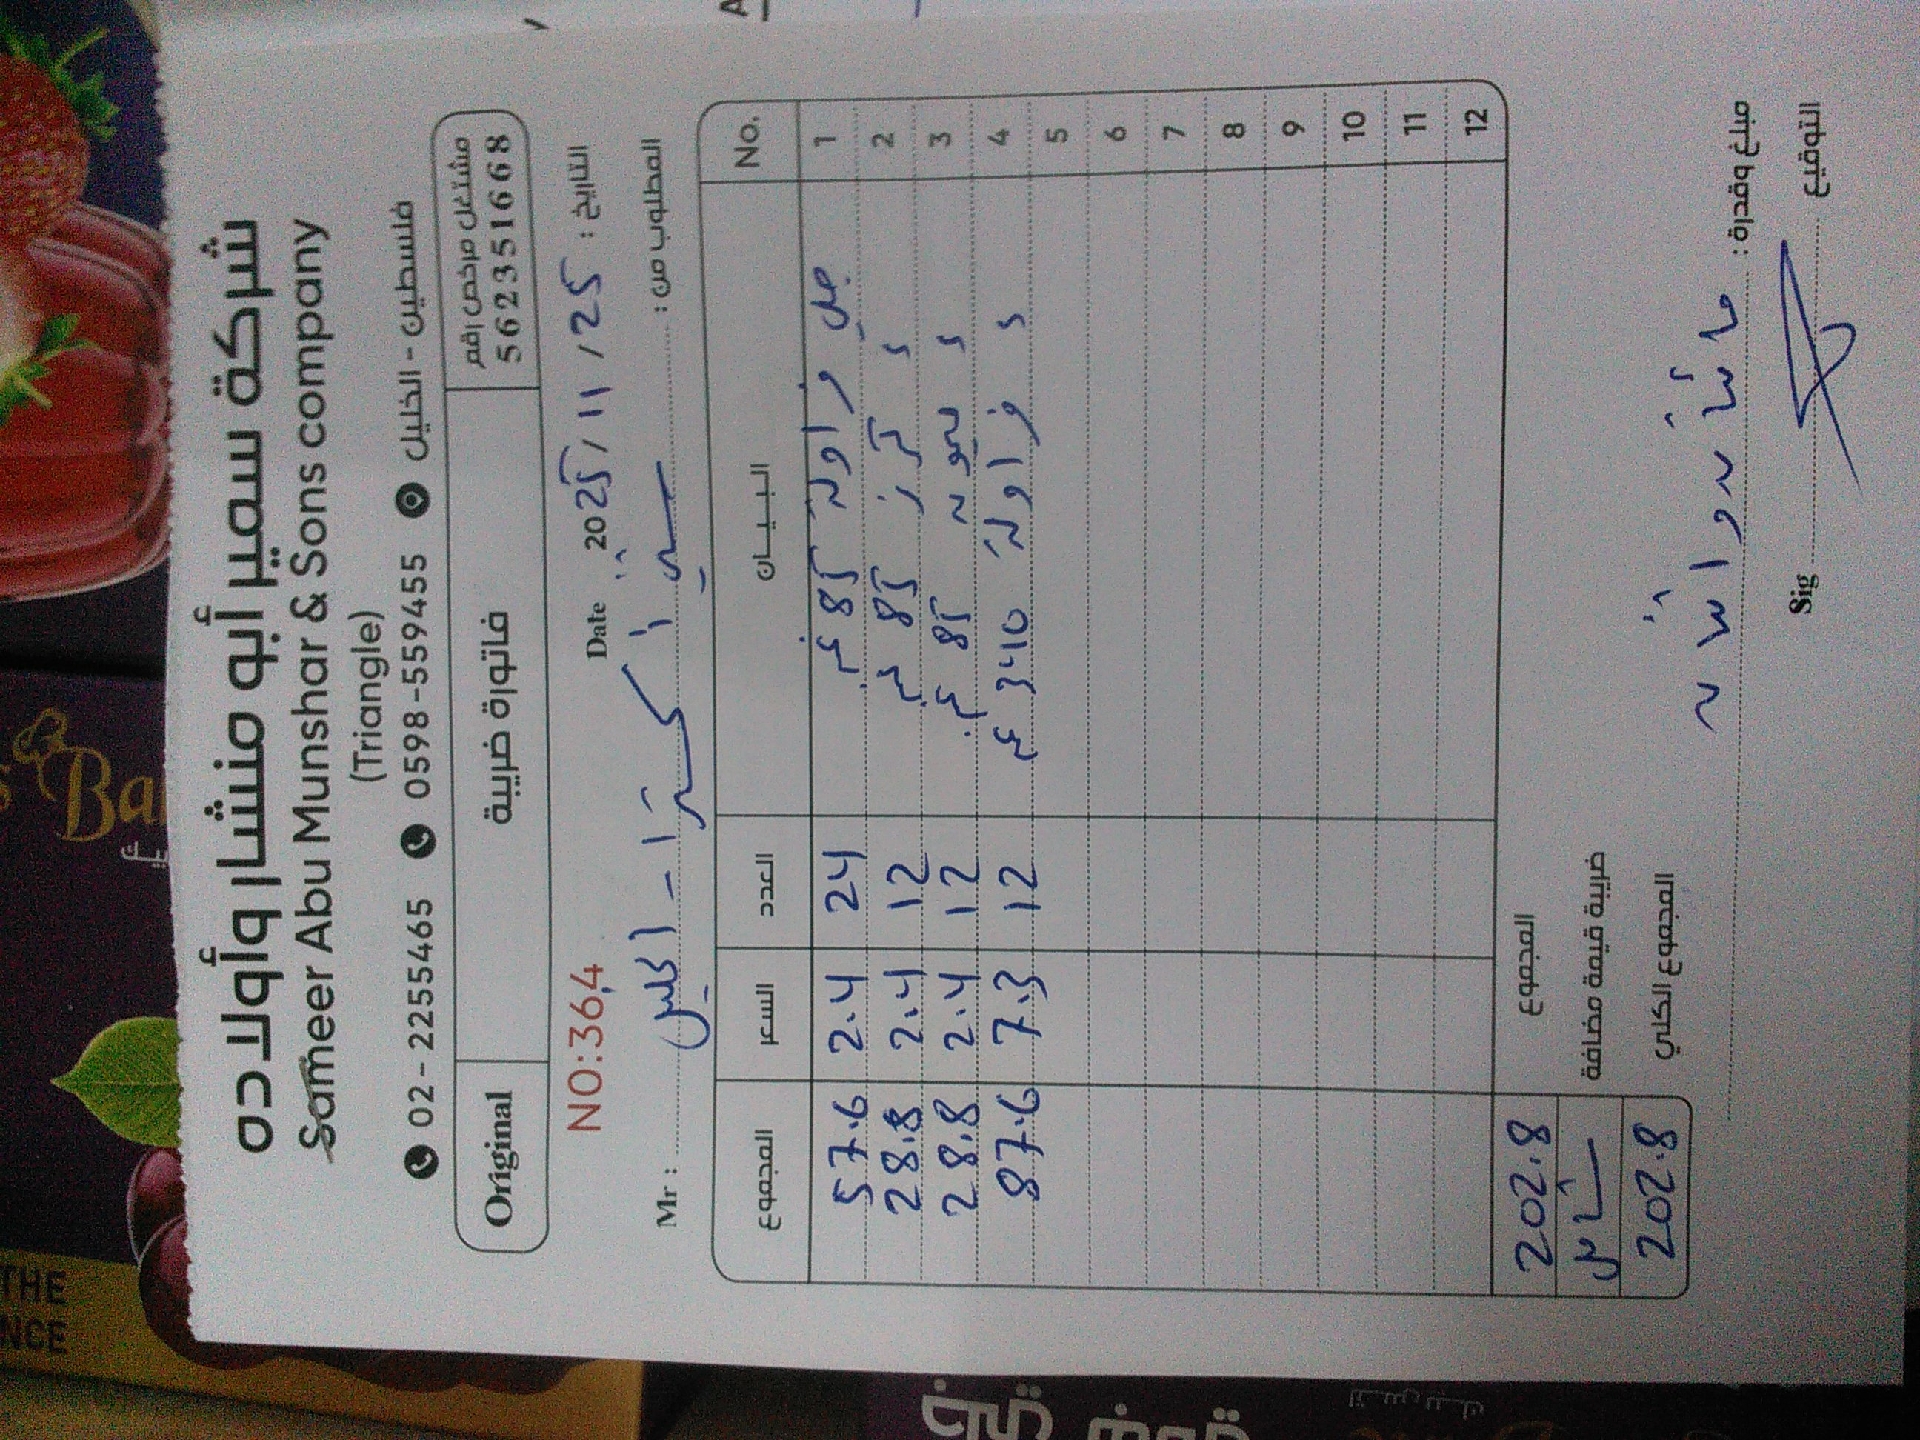 شركة سمير أبو منشار وأولاده
Sameer Abu Munshar & Sons company
(Triangle)
02-2255465 0598-559455 فلسطين - الخليل
Original فاتورة ضريبة مشتغل مرخص رقم
562351668
NO:364 Date 2025/11/25 التاريخ :
Mr : المطلوب من :
No. البيـــان العدد السعر المجموع
1 جلي فراولة 85 غم 24 2.4 57.6
2 كرز 85 غم 12 2.4 28.8
3 85 غم 12 2.4 28.8
4 فراولة 340 غم 12 7.3 87.6
5
6
7
8
9
10
11
12
المجموع 202.8
ضريبة قيمة مضافة شامل
المجموع الكلي 202.8
مبلغ وقدرة :
Sig التوقيع
Ba
THE
NCE